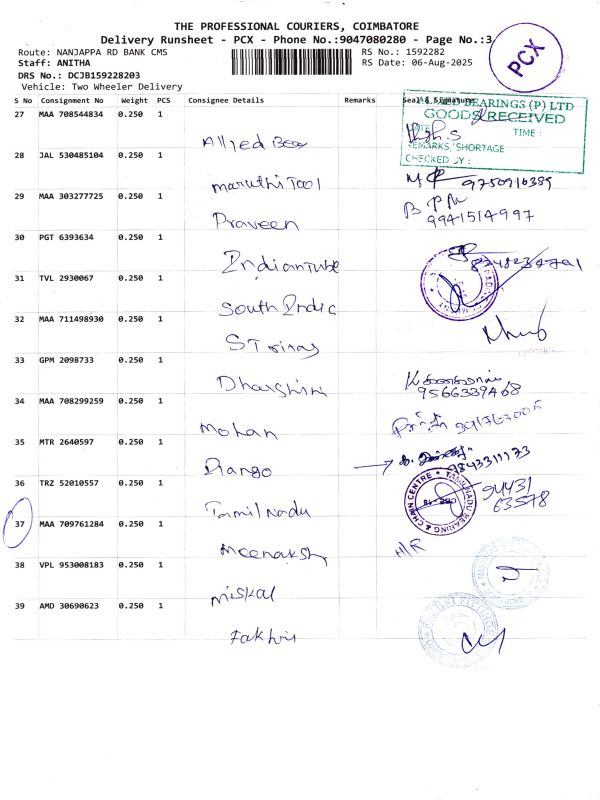 THE PROFESSIONAL COURIERS, COIMBATORE
Delivery Runsheet - PCX - Phone No.:9047080280 - Page No.:3
PCX
Route: NANJAPPA RD BANK CMS
RS No.: 1592282
Staff: ANITHA
RS Date: 06-Aug-2025
DRS No.: DCJB159228203
Vehicle: Two Wheeler Delivery
S No Consignment No Weight PCS Consignee Details Remarks Seal & Signature
BEARINGS (P) LTD
GOODS RECEIVED
TIME :
REMARKS/SHORTAGE
CHECKED BY :
27 MAA 708544834 0.250 1
Allied Bea
28 JAL 530485104 0.250 1
maruthi Tool
9750916389
29 MAA 303277725 0.250 1
Praveen
9941514997
30 PGT 6393634 0.250 1
Indian Tube
31 TVL 2930067 0.250 1
South Indic
32 MAA 711498930 0.250 1
33 GPM 2098733 0.250 1
Dharshini
9566339468
34 MAA 708299259 0.250 1
Mohan
35 MTR 2640597 0.250 1
Diango
9843311173
36 TRZ 52010557 0.250 1
Tamil Nadu
TAMILNADU BEARING & CHAIN CENTRE
CBE-18
94431
63578
37 MAA 709761284 0.250 1
Meenaksh
H/R
38 VPL 953008183 0.250 1
Miskal
39 AMD 30690623 0.250 1
Fakhri